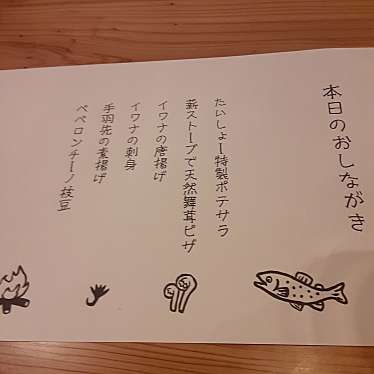 本日のおしながき
たいしょー特製ポテサラ
薪ストーブで天然舞茸ピザ
イワナの唐揚げ
イワナの刺身
手羽先の素揚げ
ペペロンチーノ枝豆